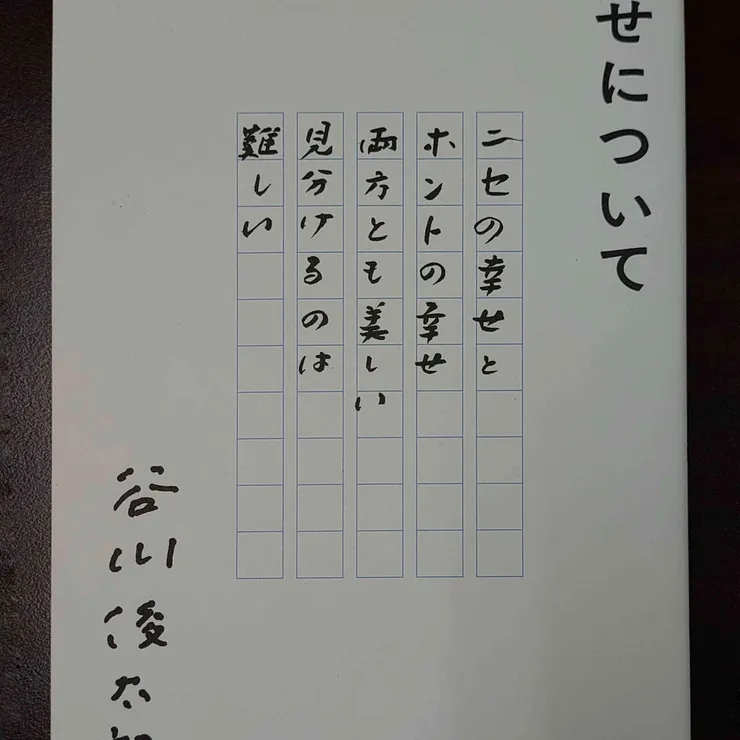 せについて
ニセの幸せと
ホントの幸せ
両方とも美しい
見分けるのは
難しい
谷川俊太郎